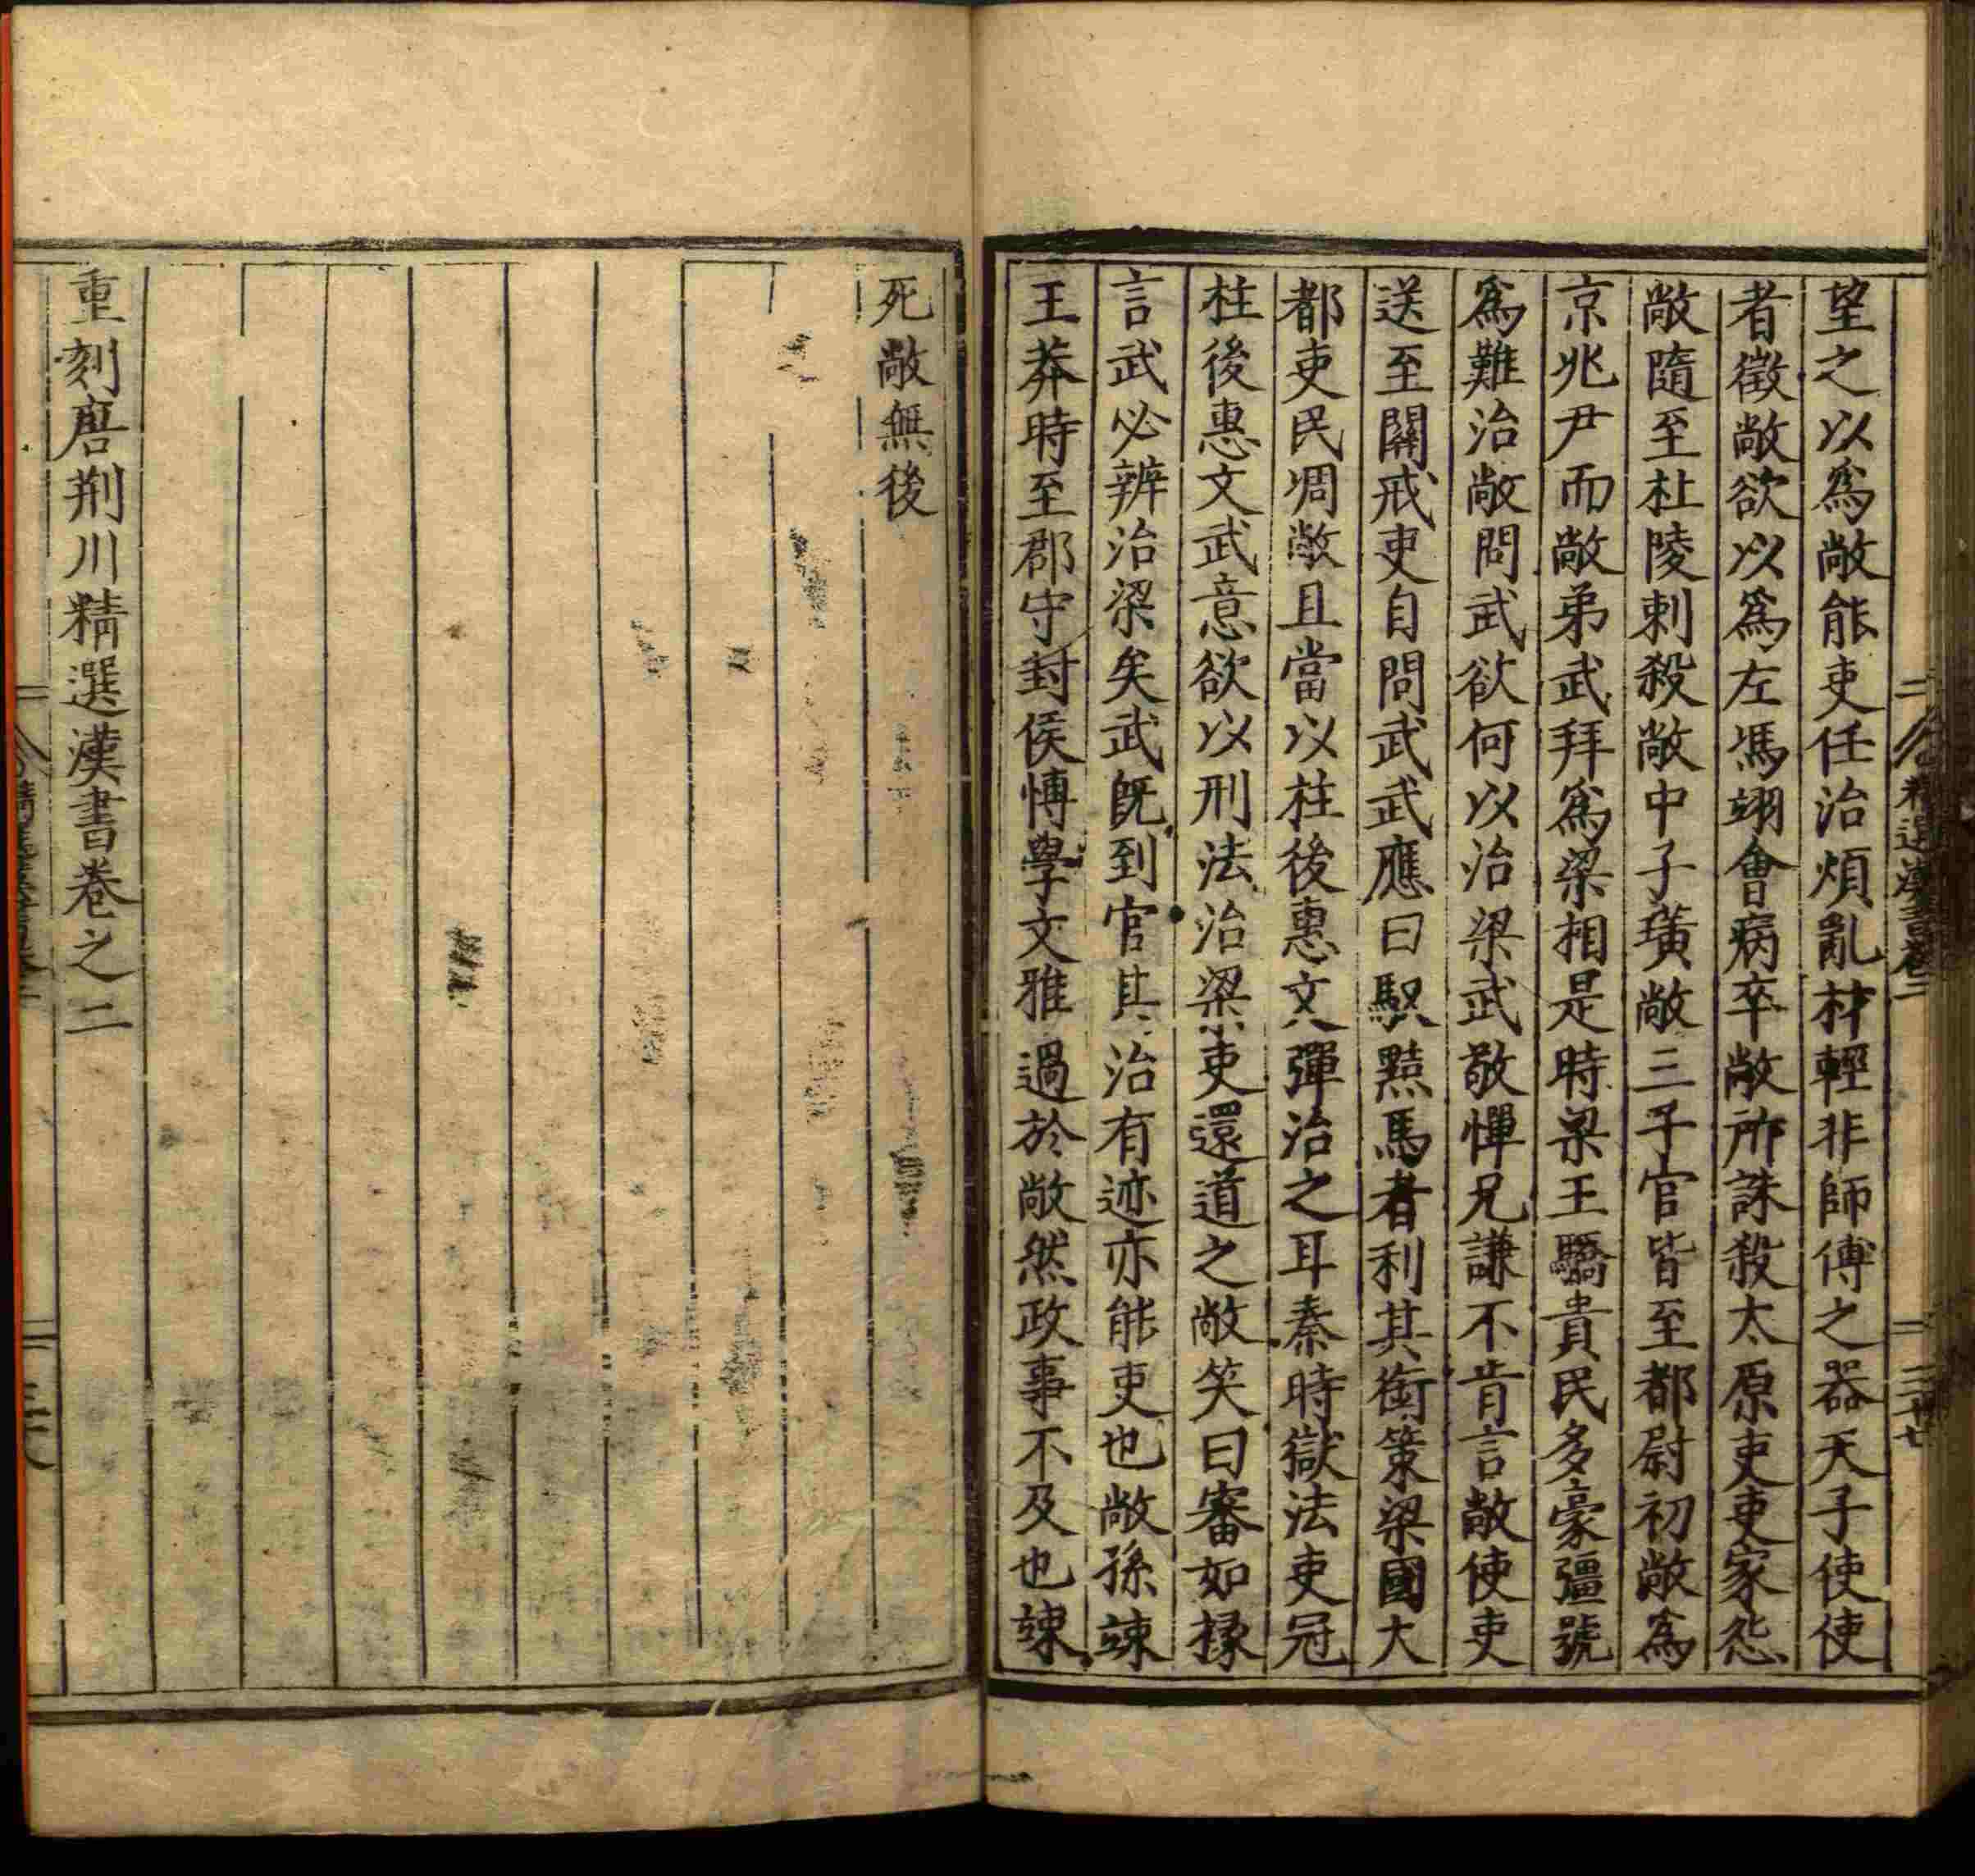 望之以爲敞能吏任治煩亂材輕非師傅之器天子使使
者徵敞欲以爲左馮翊會病卒敞所誅殺太原吏吏家怨
敞隨至杜陵刺殺敞中子璜敞三子官皆至都尉初敞爲
京兆尹而敞弟武拜爲梁相是時梁王驕貴民多豪彊號
爲難治敞問武欲何以治梁武敬憚兄謙不肯言敞使吏
送至關戒吏自問武武應曰馭黠馬者利其銜策梁國大
都吏民凋敝且當以柱後惠文彈治之耳秦時獄法吏冠
柱後惠文武意欲以刑法治梁吏還道之敞笑曰審如掾
言武必辨治梁矣武既到官其治有迹亦能吏也敞孫竦
王莽時至郡守封侯愽學文雅過於敞然政事不及也竦
精選漢書卷二
二十七
死敞無後
重刻唐荆川精選漢書卷之二